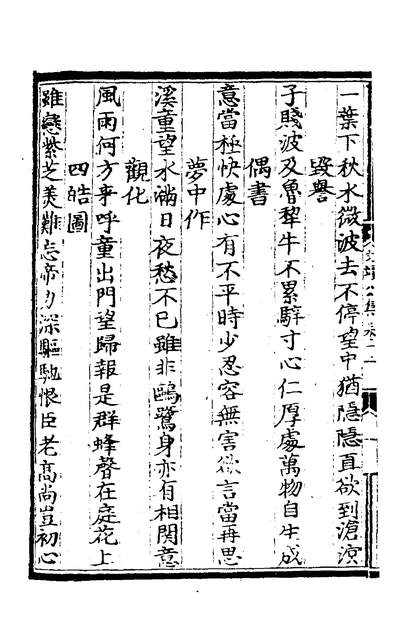 一葉下秋水微波去不停望中猶隱隱直欲到滄溟
毀譽
子賤波及魯犂牛不累騂寸心仁厚處萬物自生成
偶書
意當極快處心有不平時少忍容無害欲言當再思
夢中作
溪重望水滿日夜愁不已雖非鷗鷺身亦有相関意
觀化
風雨何方爭呼童出門望歸報是群蜂聲在庭花上
四皓圖
雖戀紫芝美難忘帝力深驅馳恨臣老高尚豈初心